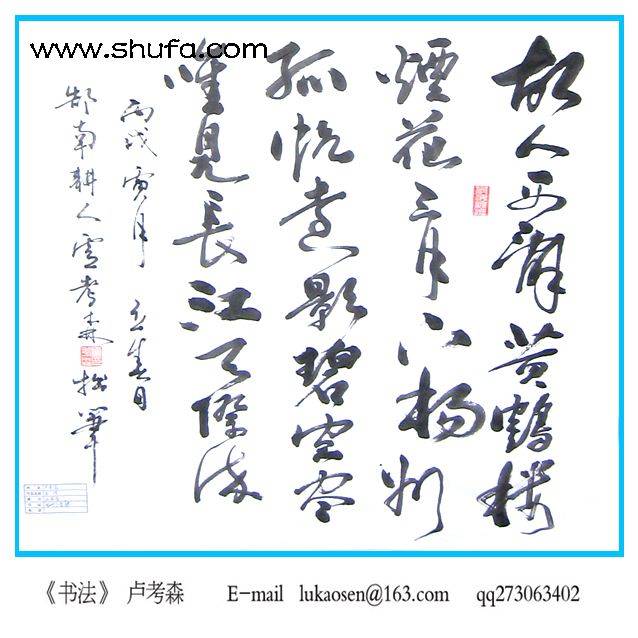 www.shufa.com
故人西辭黄鶴樓
煙花三月下揚州
孤帆遠影碧空尽
唯見長江天際流
丙戌寅月 立春日
南耕人盧考森拙筆
《书法》 卢考森 E-mail lukaosen@163.com qq273063402